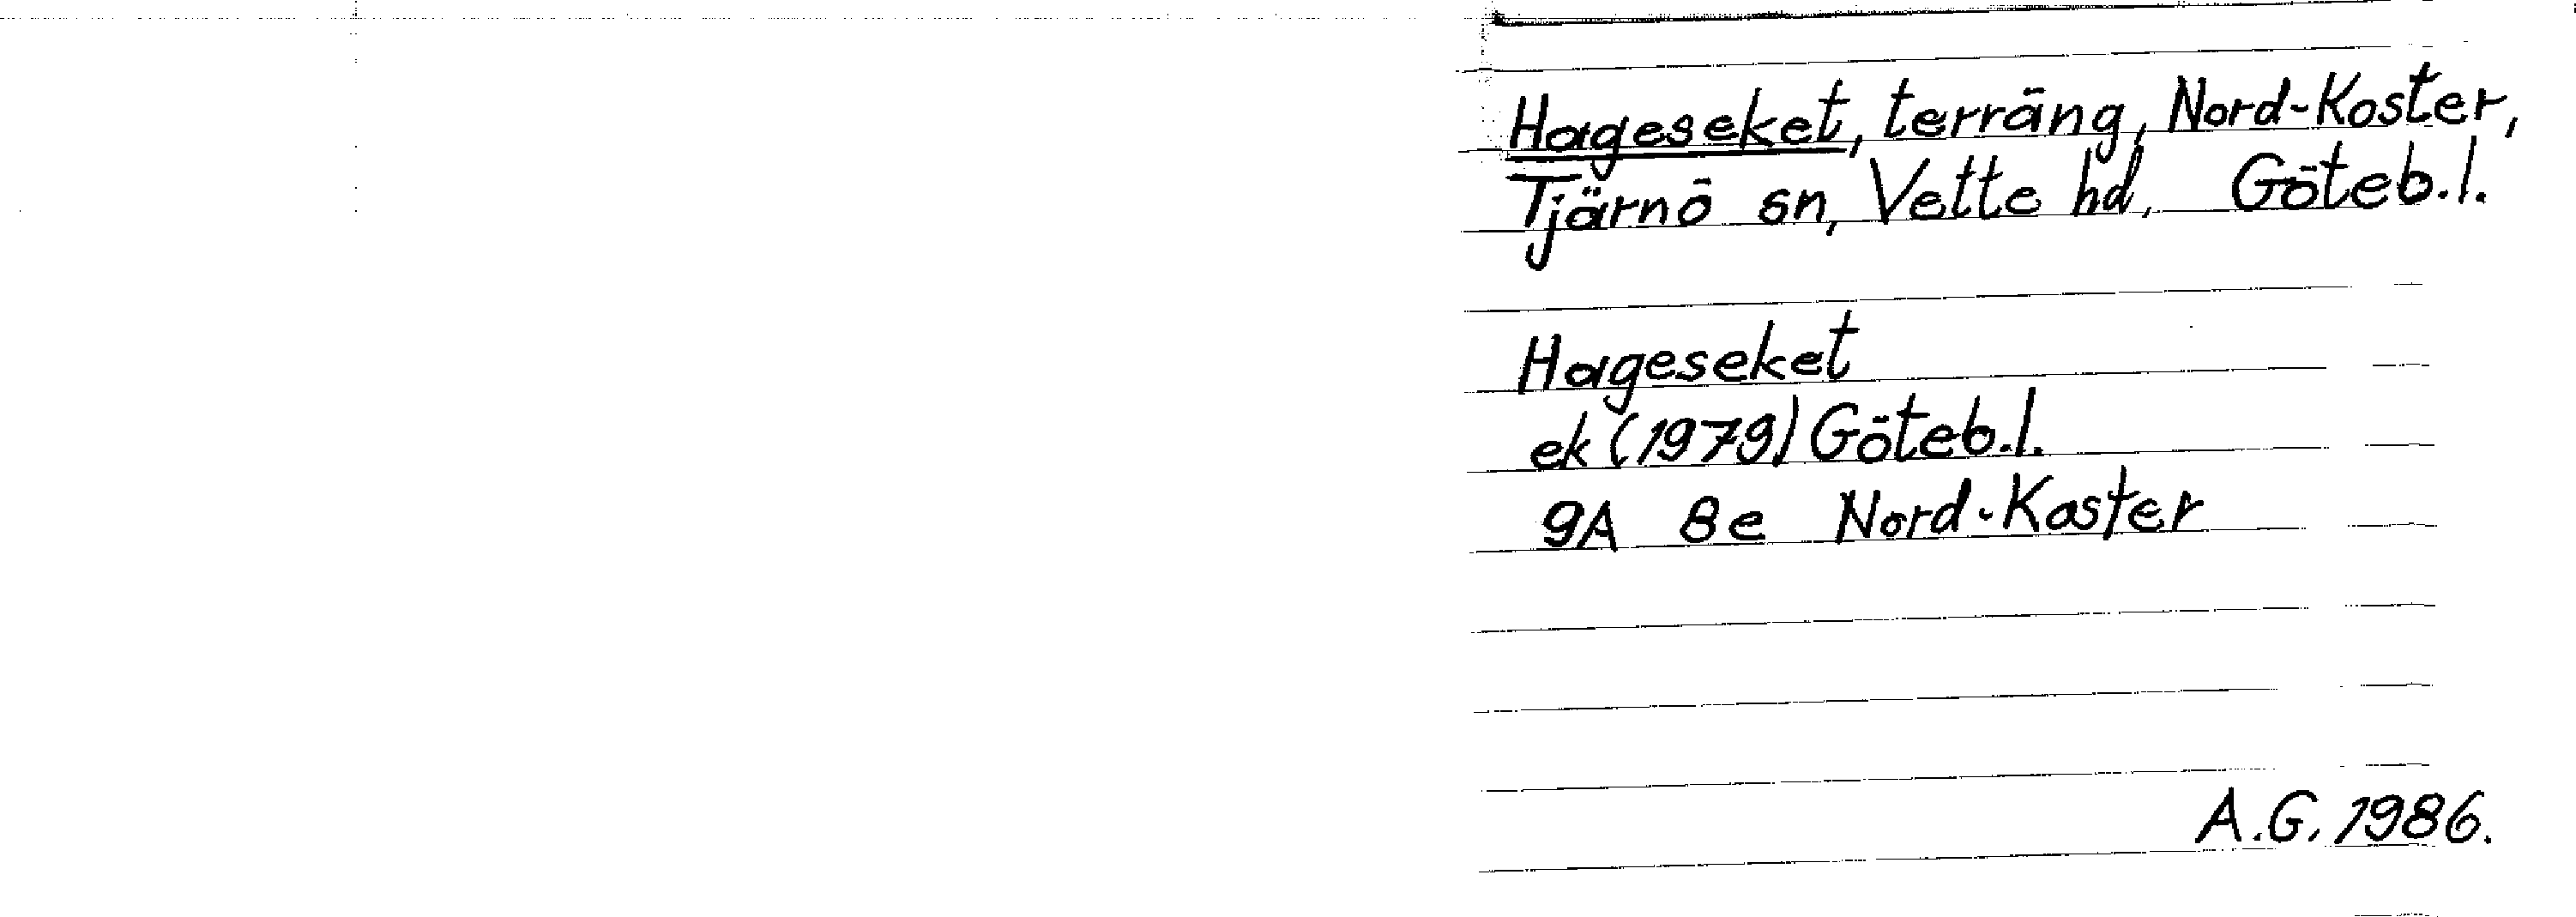 Hageseket, terräng, Nord-Koster,
Tjärnö sn, Vette hd, Göteb.l.
Hageseket
ek (1979) Göteb.l.
9A 8e Nord-Koster
A.G. 1986.